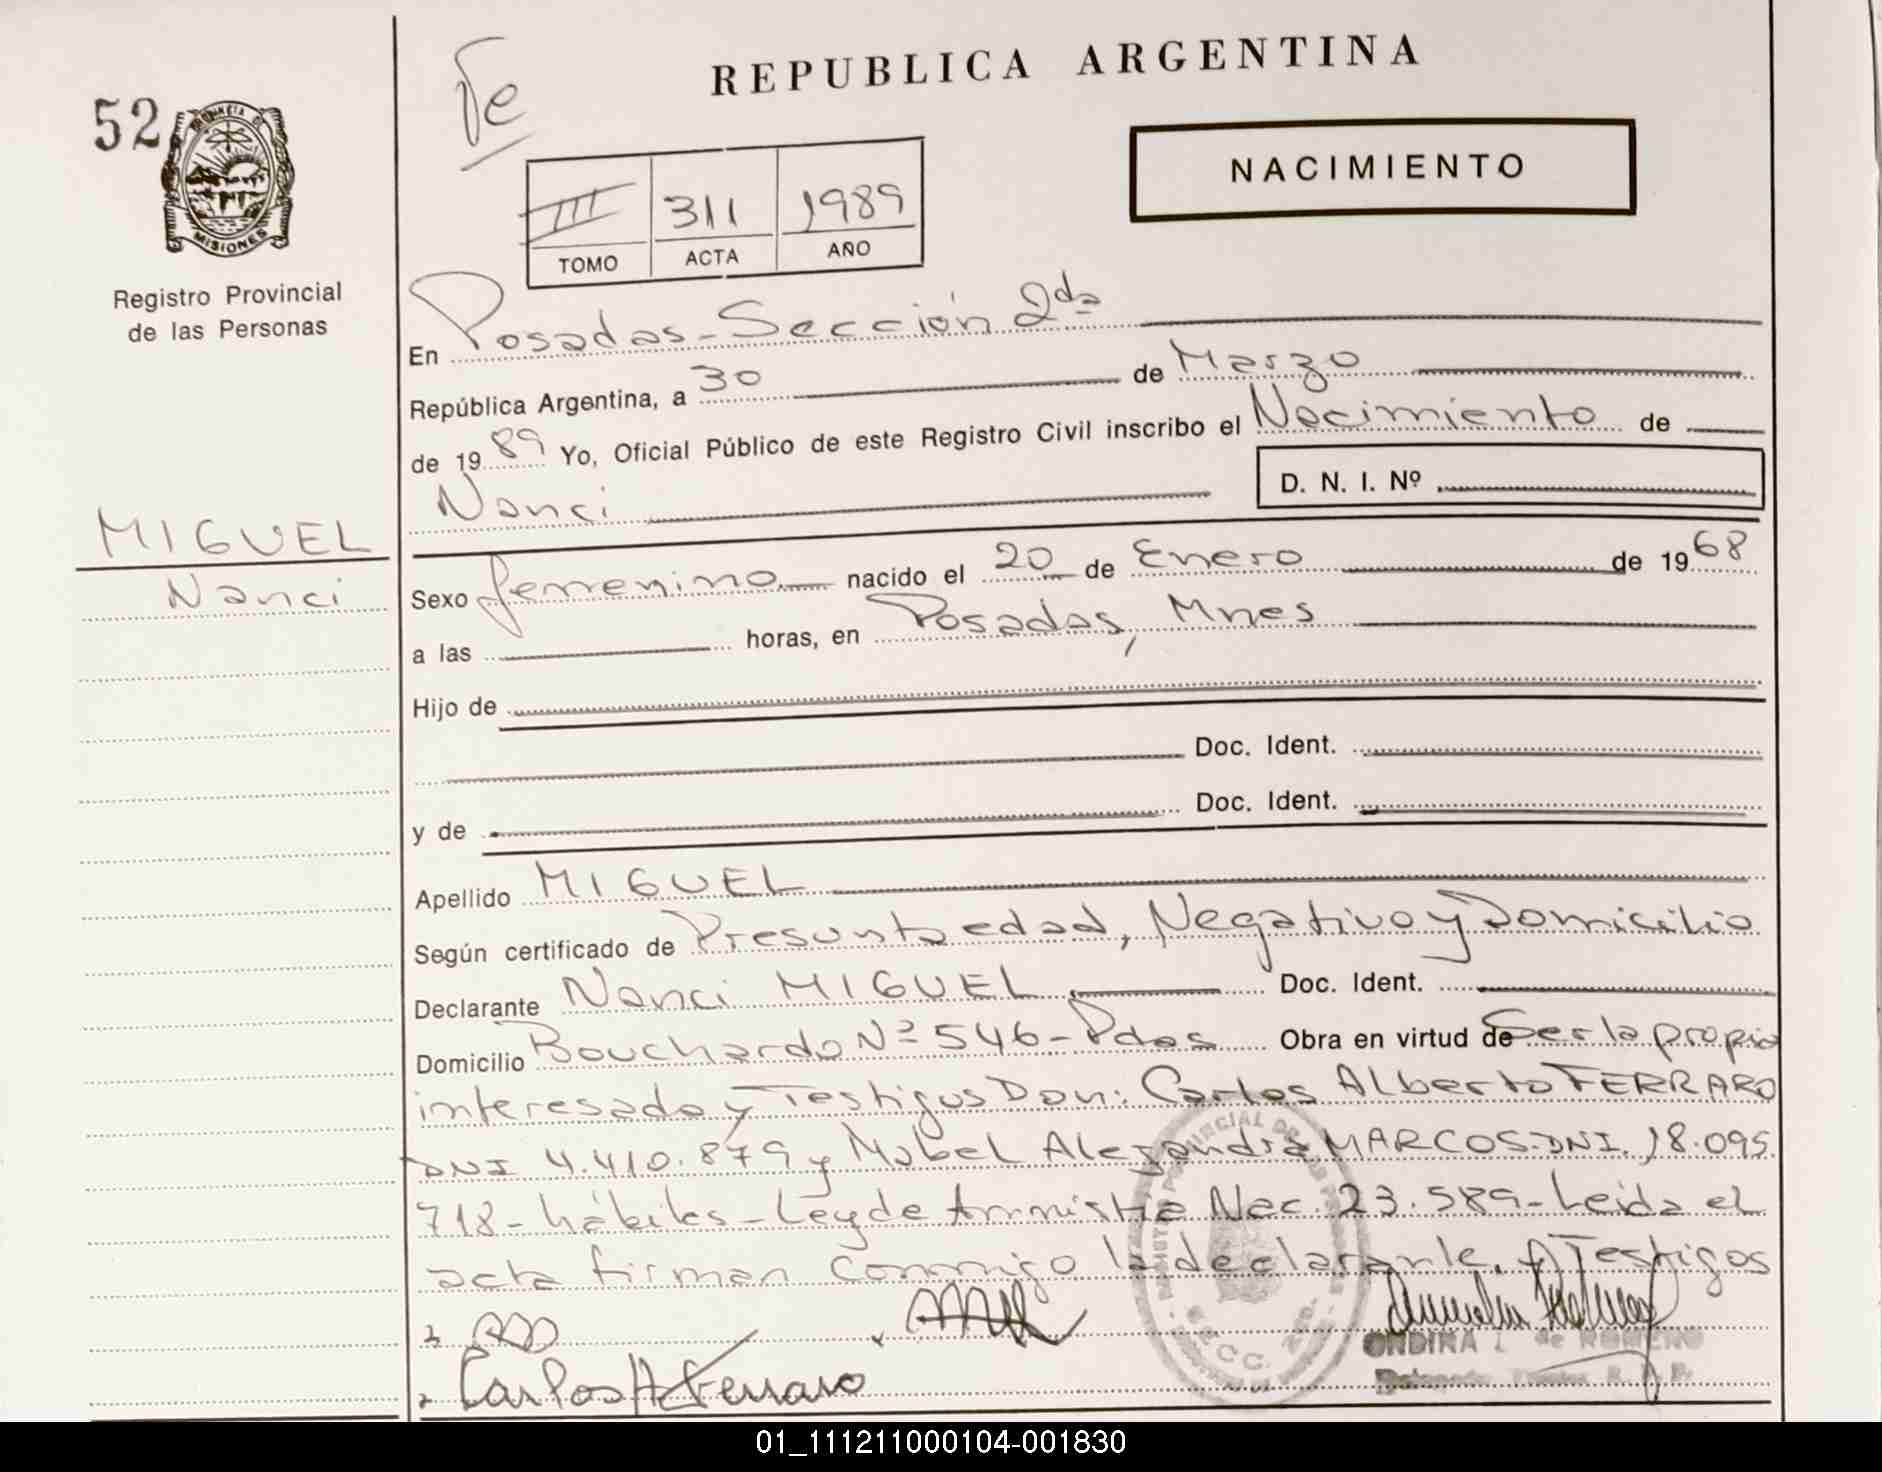 REPUBLICA ARGENTINA
52
PROVINCIA DE
MISIONES
Registro Provincial
de las Personas
NACIMIENTO
III 311 1989
TOMO ACTA AÑO
En Posadas - Sección 2da
República Argentina, a 30 de Marzo
de 1989 Yo, Oficial Público de este Registro Civil inscribo el Nacimiento de
Nanci D. N. I. Nº
MIGUEL
Nanci
Sexo femenino nacido el 20 de Enero de 1968
a las horas, en Posadas, Mnes
Hijo de
Doc. Ident.
y de Doc. Ident.
Apellido MIGUEL
Según certificado de Presunta edad, Negativo y Domicilio
Declarante Nanci MIGUEL Doc. Ident.
Domicilio Bouchardo Nº 546 - Pdas Obra en virtud de Ser la propia
interesada y Testigos Don: Carlos Alberto FERRARO
DNI 4.410.879 y Mabel Alejandra MARCOS - DNI. 18.095.
718 - hábiles - Ley de Amnistía Nac. 23.589 - Leida el
acta firman conmigo la declarante y Testigos
Carlos A Ferraro
ONDINA L de ROMERO
01_111211000104-001830